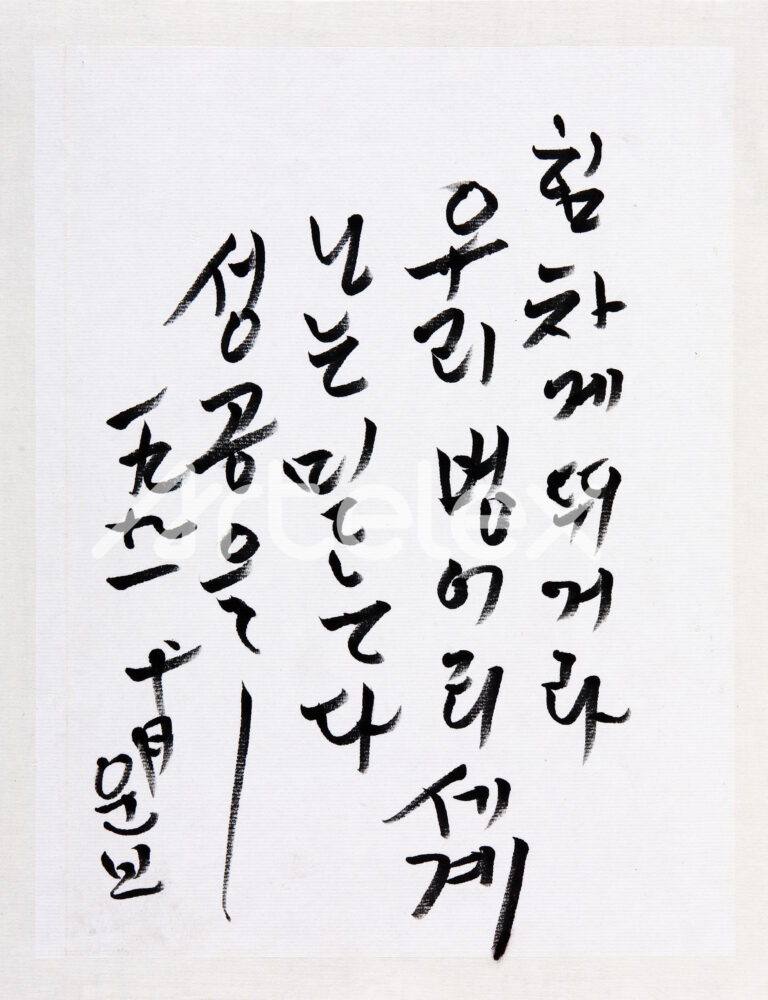 힘차게 뛰거라
우리 벙어리 세계
나는 믿는다
성공을!
一九九一 十月 운보
artelex